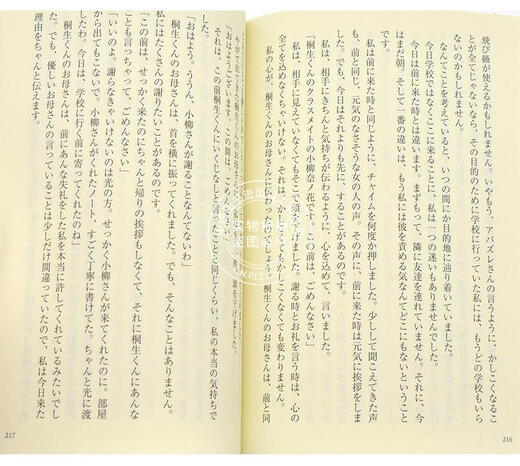 飛び級が使えるかもしれません。いやもう、アバズレさんの言うように、かしこくなるこ
とが全てじゃないなら、その目的のために学校に行っていた私には、もうどの学校もいら
ないのかもしれません。
なんてことを考えていると、いつの間にか目的地に辿り着いていました。
今日学校ではなくここに来ることに、私は一つの迷いもありませんでした。
いつもここに来た時とは違います。まずもって、隣に友達を連れていません。それに、今
はまだ朝。そして一番の違いは、もう私には彼を責める気なんてどこにもないということ
です。
私は前に来た時と同じように、チャイムを何度か押しました。少しして聞こえてきた声
も、前と同じ、元気のなさそうな女の人の声。その声に、前に来た時は元気に挨拶をしま
した。でも、今日はそれよりも先に、することがあるのです。
私は、相手にきちんと気持ちが伝わるように、心を込めて、言いました。
「桐生くんのクラスメイトの小柳奈ノ花です。この前は、ごめんなさい」
私は、相手に見えていなくてもそこで頭を下げました。謝る時とお礼を言う時は、心の
全てを込めなくちゃいけない。それは、かしこくてもかしこくなくても変わりません。
私の心が、桐生くんのお母さんに伝わったのでしょう。桐生くんのお母さんは、前と同
216
頭を下げました。
「おはようございます。この間は、
それは、この前桐生くんにいくじなしと言ったことと同じくらい、私の本当の気持ちで
した。
「おはよう。ううん、小柳さんが謝ることなんてないわ」
桐生くんのお母さんは、首を横に振ってくれました。でも、そんなことはありません。
私にはたくさんの謝りたいことがあるのです。
「この前は、せっかく来たのにちゃんと帰りの挨拶もしなくて、それに桐生くんにあんな
ことも言っちゃって、ごめんなさい」
「いいのよ。謝らなきゃいけないのは光の方。せっかく小柳さんが来てくれたのに、部屋
から出てもこないで。小柳さんがくれたノート、すごく丁寧に書けてた。ちゃんと光に渡
しました。今日は、学校に行く前に寄ってくれたのね」
桐生くんのお母さんは、前にあんな失礼をした私を本当に許してくれているみたいでし
た。でも、優しいお母さんの言っていることは少しだけ間違っていたので、私は今日来た
理由をちゃんと伝えます。
217